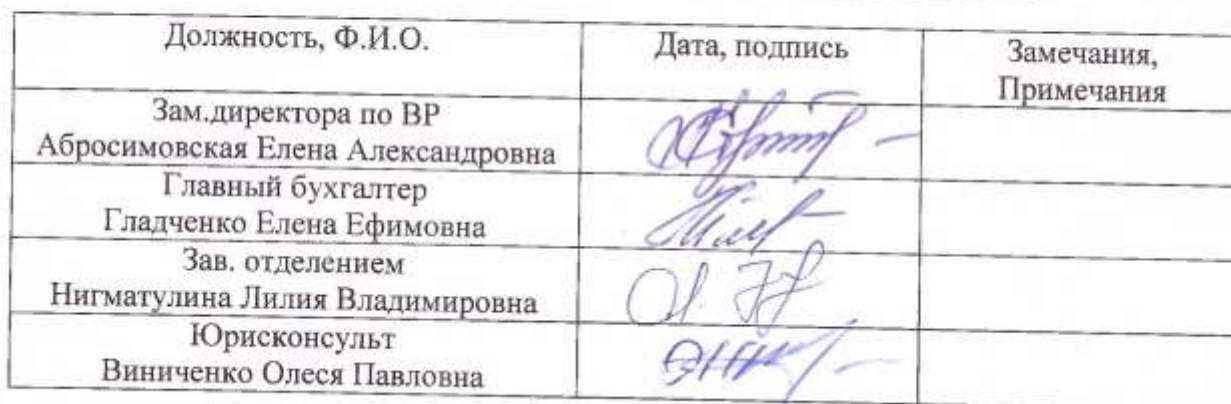 Должность, Ф.И.О.
Дата, подпись
Замечания,
Примечания
Зам.директора по ВР
Абросимовская Елена Александровна
Главный бухгалтер
Гладченко Елена Ефимовна
Зав. отделением
Нигматулина Лилия Владимировна
Юрисконсульт
Виниченко Олеся Павловна